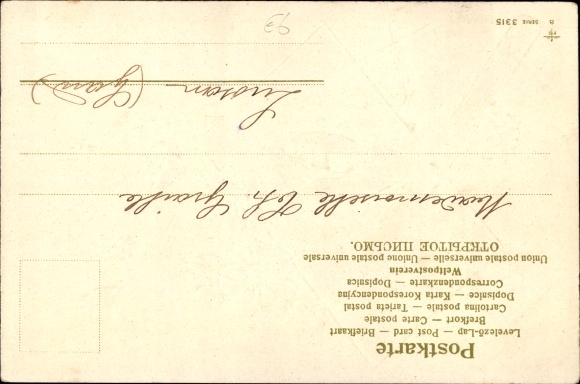 Postkarte
Levelező-Lap — Post card — Briefkaart
Brefkort — Carte postale
Cartolina postale — Tarjeta postal
Dopisnice — Karta Korespondencyjna
Correspondenzkarte — Dopisnica
Weltpostverein
Union postale universelle — Unione postale universale
ОТКРЫТОЕ ПИСЬМО.
Mademoiselle
Lussan
(Gard)
SERIE 3315